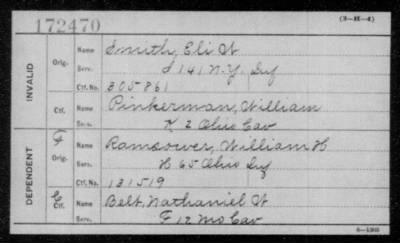 172470 (3-H-4)
INVALID
Orig. Name Smith, Eli W
Serv. I 141 N.Y. Inf
Ctf. No. 305861
Ctf. Name Pinkerman, William
Serv. K 2 Ohio Cav
DEPENDENT
F Orig. Name Ramsower, William H
Serv. H 65 Ohio Inf
Ctf. No. 131519
C Ctf. Name Belt, Nathaniel W
Serv. F 12 Mo Cav